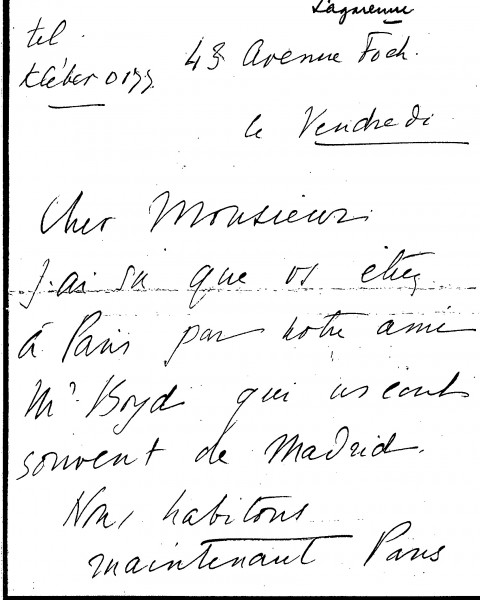 Lagarenne
tel
Kléber 0199.
43 Avenue Foch.
le Vendredi
Cher Monsieur
J'ai su que vs étiez
à Paris par notre ami
Mr Boyd qui ns écrit
souvent de Madrid.
Nous habitons
maintenant Paris